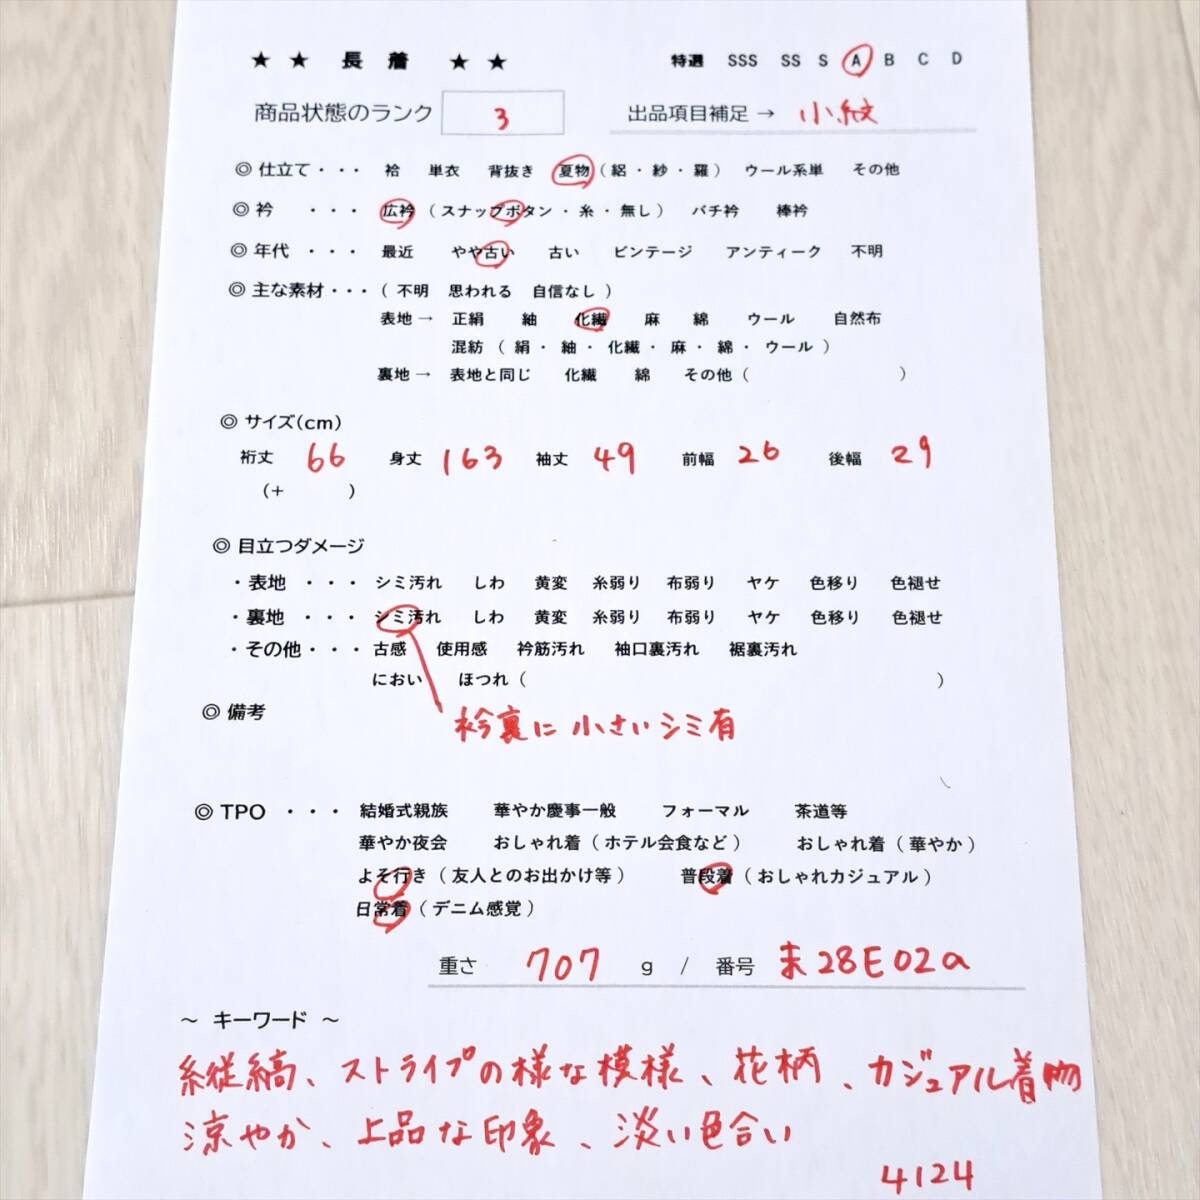 ★ ★ 長 着 ★ ★ 特選 SSS SS S A B C D
商品状態のランク 3 出品項目補足 → 小紋
◎ 仕立て・・・ 袷 単衣 背抜き 夏物 ( 絽 ・ 紗 ・ 羅 ) ウール系単 その他
◎ 衿 ・・・ 広衿 ( スナップボタン ・ 糸 ・ 無し ) バチ衿 棒衿
◎ 年代 ・・・ 最近 やや古い 古い ビンテージ アンティーク 不明
◎ 主な素材・・・ ( 不明 思われる 自信なし )
表地 → 正絹 紬 化繊 麻 綿 ウール 自然布
混紡 ( 絹 ・ 紬 ・ 化繊 ・ 麻 ・ 綿 ・ ウール )
裏地 → 表地と同じ 化繊 綿 その他 ( )
◎ サイズ(cm)
裄丈 66 身丈 163 袖丈 49 前幅 26 後幅 29
(+ )
◎ 目立つダメージ
・表地 ・・・ シミ汚れ しわ 黄変 糸弱り 布弱り ヤケ 色移り 色褪せ
・裏地 ・・・ シミ汚れ しわ 黄変 糸弱り 布弱り ヤケ 色移り 色褪せ
・その他・・・ 古感 使用感 衿筋汚れ 袖口裏汚れ 裾裏汚れ
におい ほつれ ( )
◎ 備考
衿裏に小さいシミ有
◎ TPO ・・・ 結婚式親族 華やか慶事一般 フォーマル 茶道等
華やか夜会 おしゃれ着 ( ホテル会食など ) おしゃれ着 ( 華やか )
よそ行き ( 友人とのお出かけ等 ) 普段着 ( おしゃれカジュアル )
日常着 ( デニム感覚 )
重さ 707 g / 番号 末28E02a
~ キーワード ~
縦縞、ストライプの様な模様、花柄、カジュアル着物
涼やか、上品な印象、淡い色合い
4124